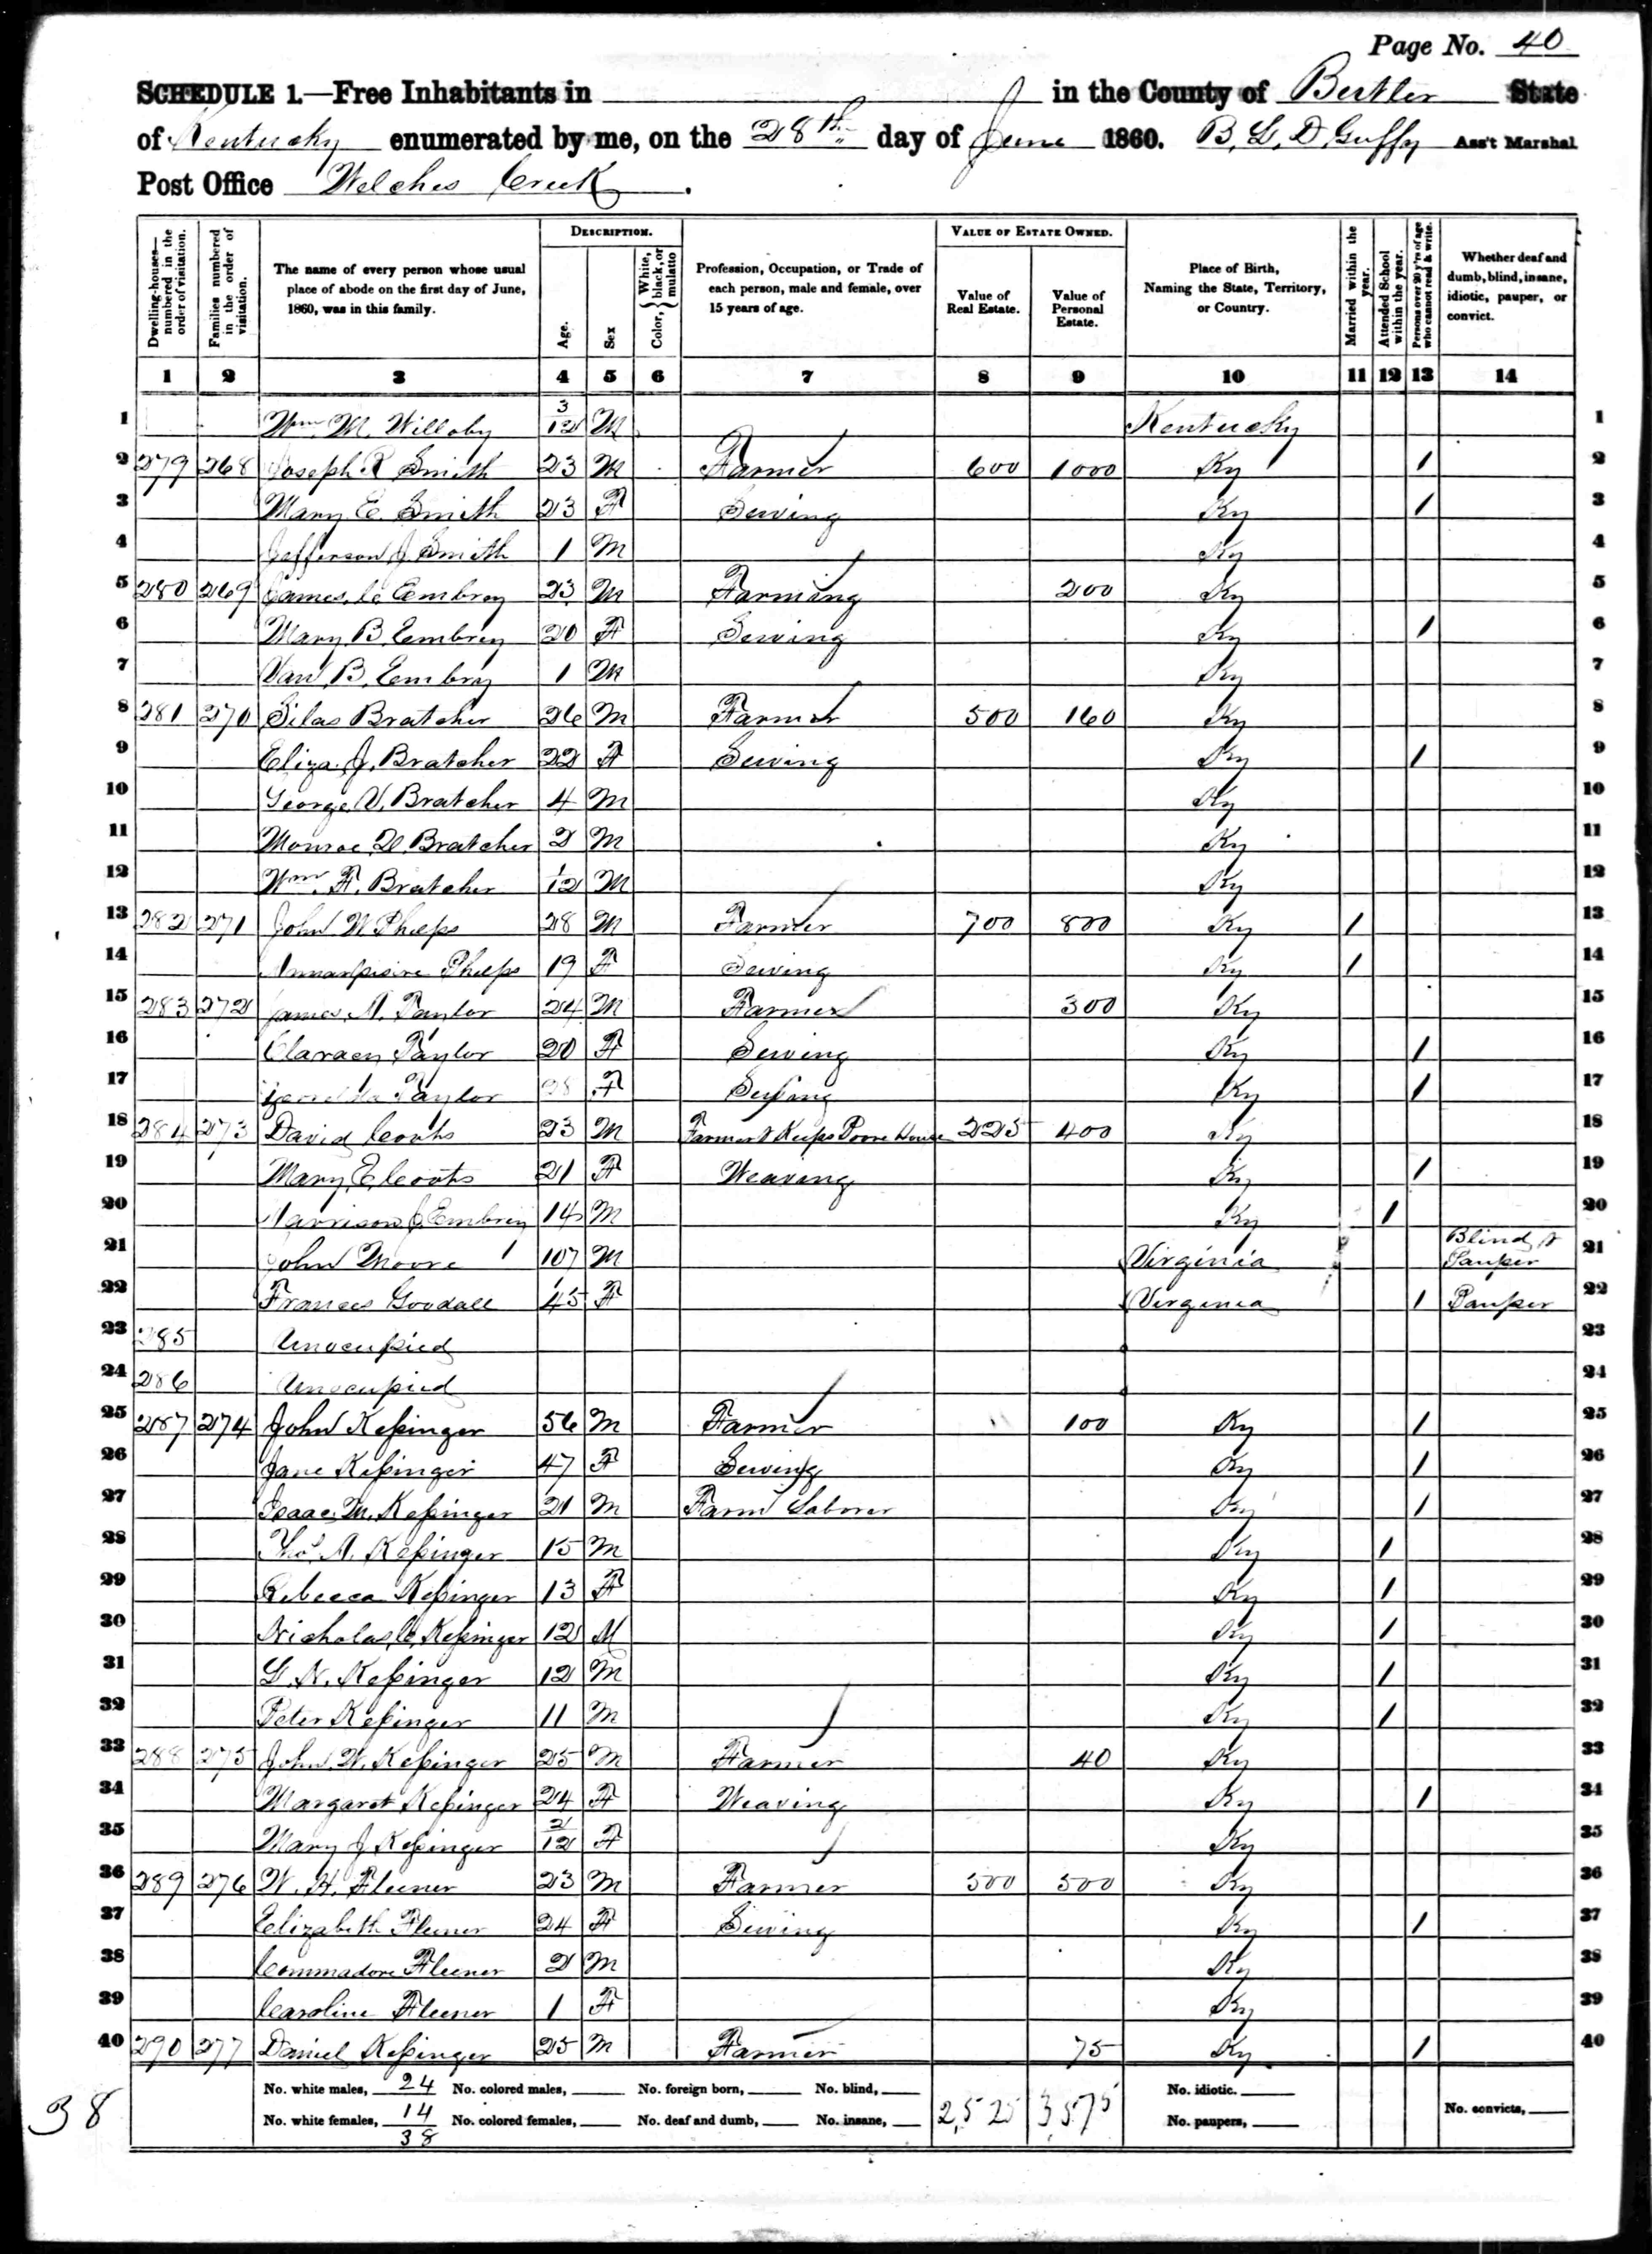 Page No. 40
SCHEDULE 1.—Free Inhabitants in in the County of Butler State
of Kentucky enumerated by me, on the 28th day of June 1860. B. L. D. Guffy Ass't Marshal
Post Office Welches Creek.
Dwelling-houses—numbered in the order of visitation.
Families numbered in the order of visitation.
The name of every person whose usual place of abode on the first day of June, 1860, was in this family.
DESCRIPTION.
Age.
Sex
Color, { White, black, or mulatto
Profession, Occupation, or Trade of each person, male and female, over 15 years of age.
VALUE OF ESTATE OWNED.
Value of Real Estate.
Value of Personal Estate.
Place of Birth, Naming the State, Territory, or Country.
Married within the year.
Attended School within the year.
Persons over 20 y'rs of age who cannot read & write.
Whether deaf and dumb, blind, insane, idiotic, pauper, or convict.
1 2 3 4 5 6 7 8 9 10 11 12 13 14
1 Wm. M. Willoby 3/12 M Kentucky 1
2 279 268 Joseph R Smith 23 M Farmer 600 1000 Ky / 2
3 Mary E. Smith 23 F Sewing Ky / 3
4 Jefferson J. Smith 1 M Ky 4
5 280 269 James C Embrey 23 M Farming 200 Ky 5
6 Mary B. Embrey 20 F Sewing Ky / 6
7 Van B. Embry 1 M Ky 7
8 281 270 Silas Bratcher 26 M Farmer 500 160 Ky 8
9 Eliza J. Bratcher 22 F Sewing Ky / 9
10 George V. Bratcher 4 M Ky 10
11 Monroe D. Bratcher 2 M Ky 11
12 Wm. F. Bratcher 1/12 M Ky 12
13 282 271 John W Phelps 28 M Farmer 700 800 Ky / 13
14 Phelps 19 F Sewing Ky / 14
15 283 272 James N. Taylor 24 M Farmer 300 Ky 15
16 Taylor 20 F Sewing Ky / 16
17 Taylor F Sewing Ky / 17
18 284 273 David Coots 23 M Farmer & Keeps Poore House 225 400 Ky 18
19 Mary E Coots 21 F Weaving Ky / 19
20 Harrison J Embrey 14 M Ky / 20
21 John Moore 107 M Virginia Blind & Pauper 21
22 Frances Goodall 45 F Virginia / Pauper 22
23 285 Unocupied 23
24 286 Unocupied 24
25 287 274 John Keßinger 56 M Farmer 100 Ky / 25
26 Jane Keßinger 47 F Sewing Ky / 26
27 Isaac M. Keßinger 21 M Farm Laborer Ky / 27
28 Thos. A. Keßinger 15 M Ky / 28
29 Rebecca Keßinger 13 F Ky / 29
30 Nicholas C. Keßinger 12 M Ky / 30
31 G. N. Keßinger 12 M Ky / 31
32 Peter Keßinger 11 M Ky / 32
33 288 275 John W. Keßinger 25 M Farmer 40 Ky 33
34 Margaret Keßinger 24 F Weaving Ky / 34
35 Mary J Keßinger 2/12 F Ky 35
36 289 276 W. H. Fleener 23 M Farmer 500 500 Ky 36
37 Elizabeth Fleener 24 F Sewing Ky / 37
38 Commadore Fleener 2 M Ky 38
39 Caroline Fleener 1 F Ky 39
40 290 277 Daniel Keßinger 25 M Farmer 75 Ky / 40
No. white males, 24 No. colored males, No. foreign born, No. blind, No. idiotic.
No. white females, 14 No. colored females, No. deaf and dumb, No. insane, 2,525 3,575 No. paupers, No. convicts,
38
38